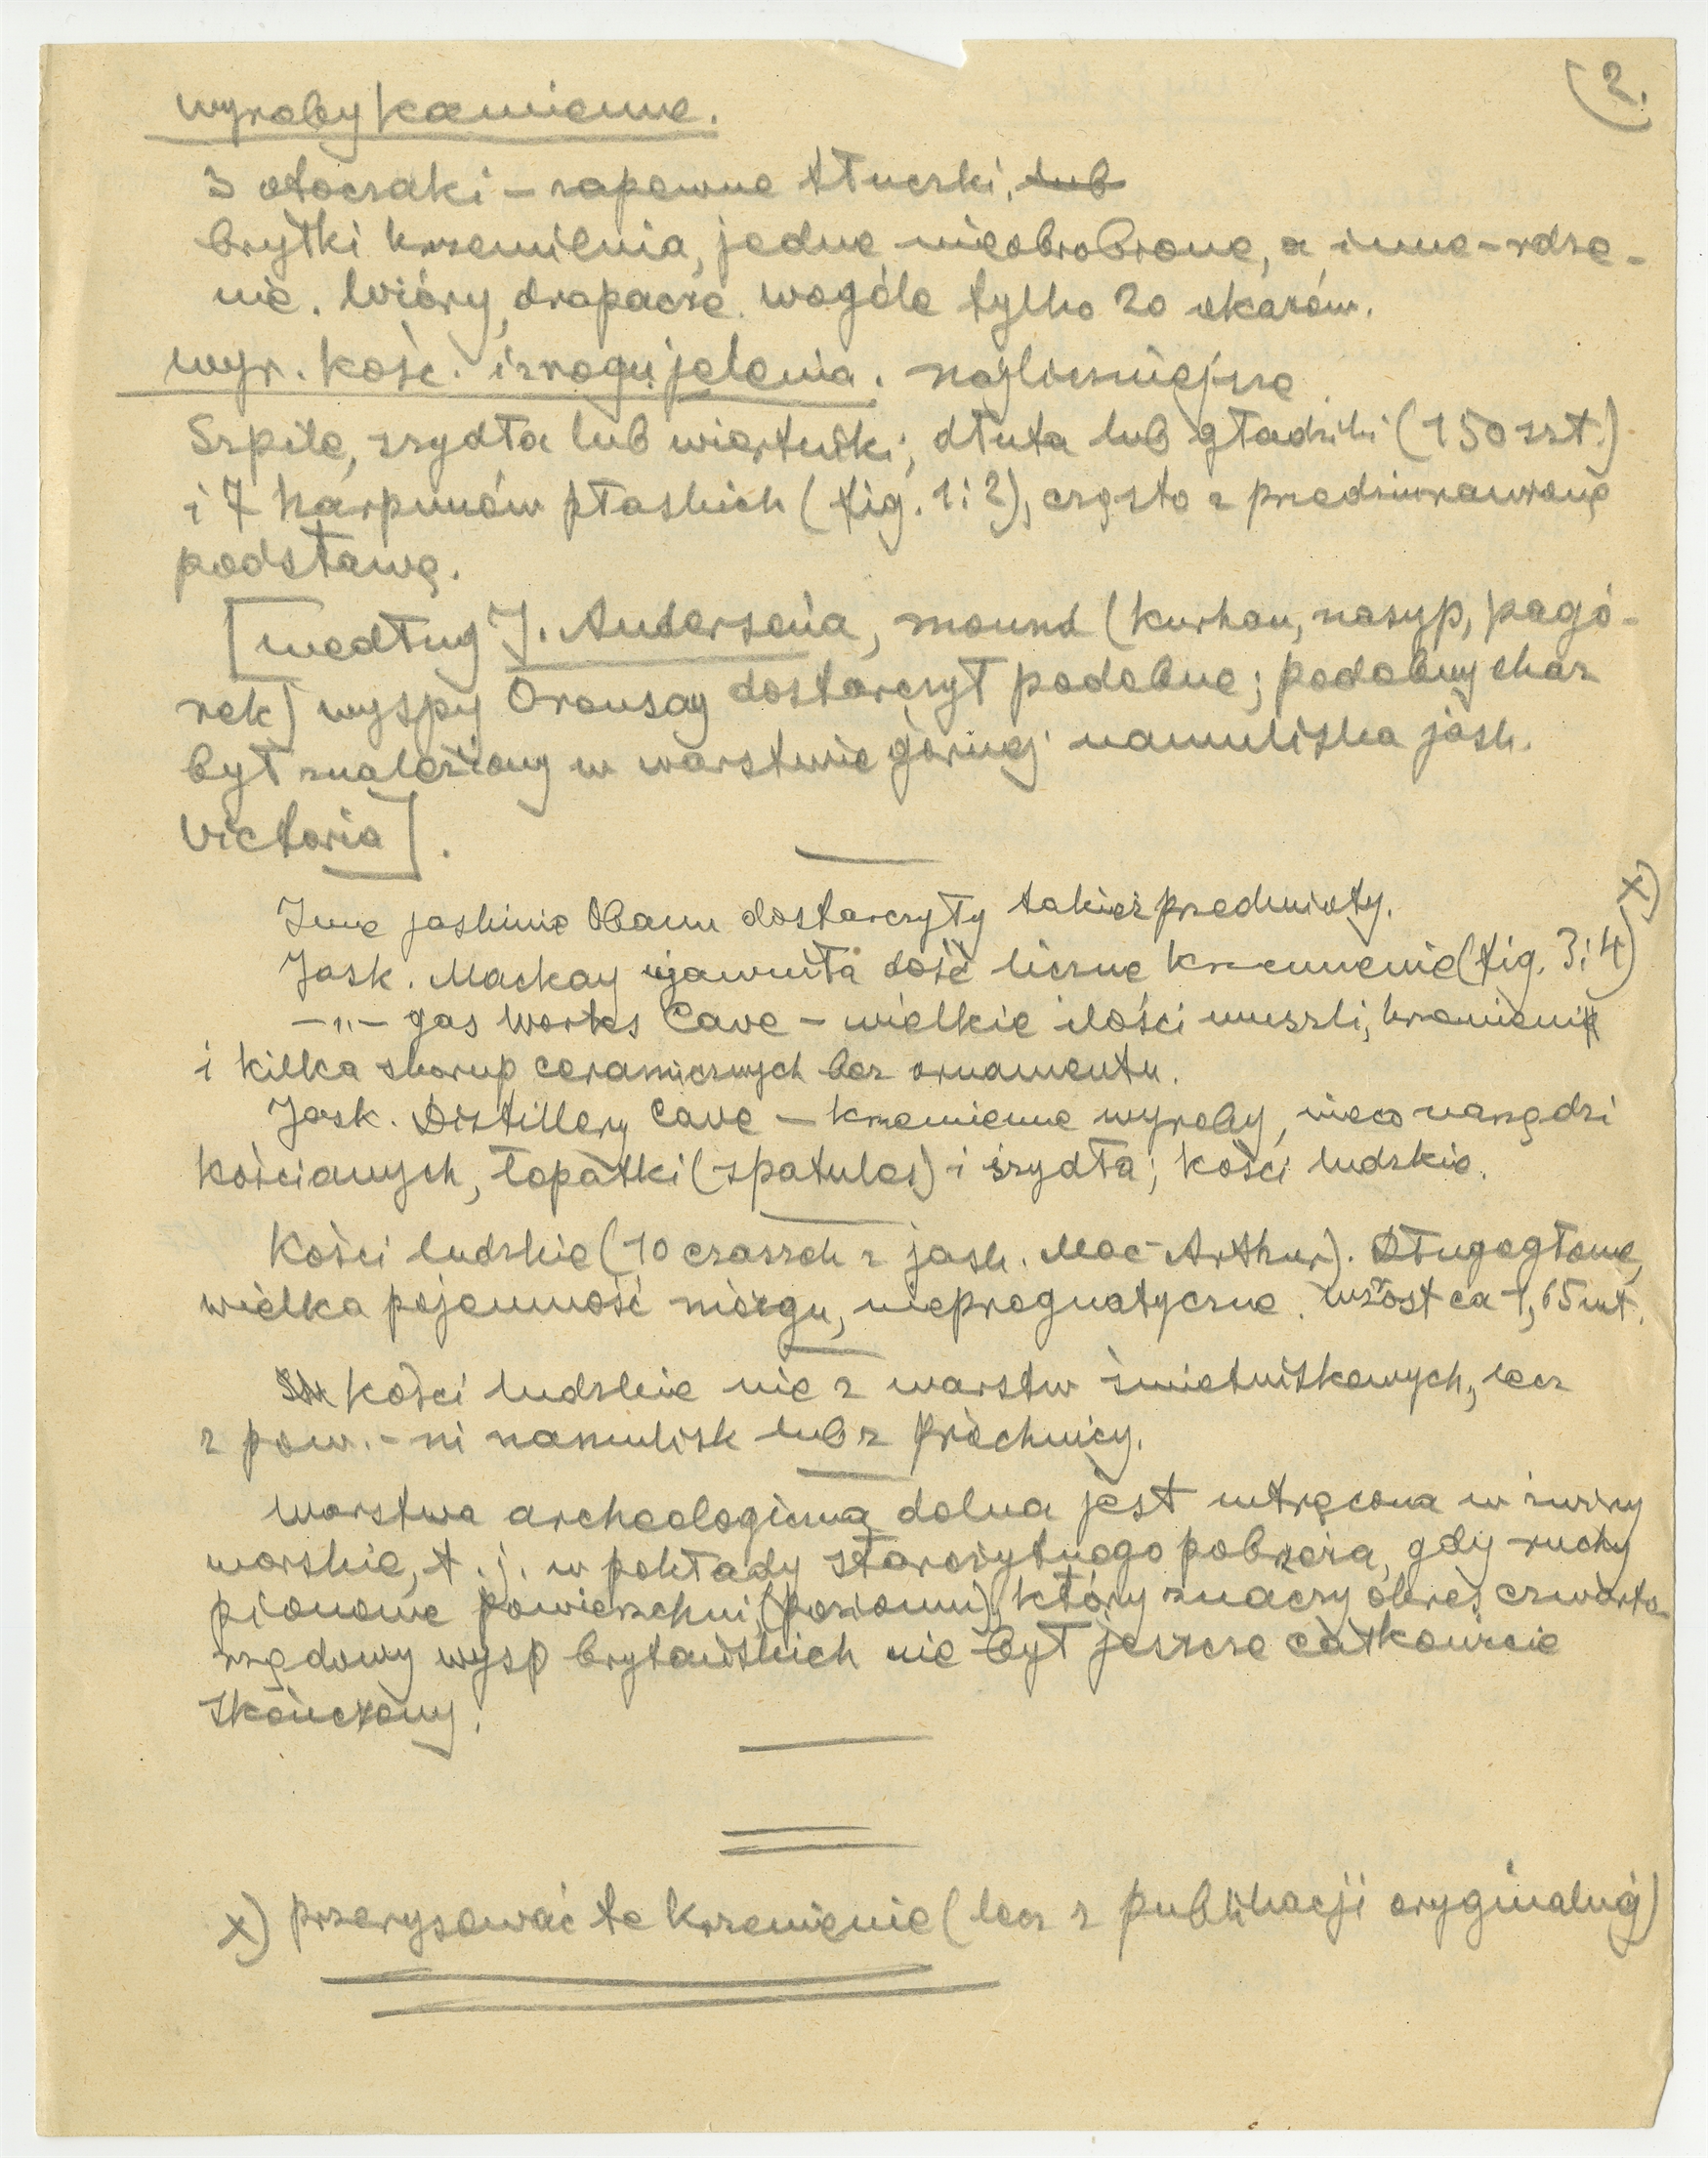 (2.
wyroby kamienne.
3 otoczaki – zapewne tłuczki. lub
bryłki krzemienia, jedne nieobrobione, a inne – rdze-
nie. Wióry, drapacze. wogóle tylko 20 okazów.
wyr. kość. i z rogu jelenia. najliczniejsze
Szpile, szydła lub wiertniki; dłuta lub gładziki (150 szt.)
i 7 harpunów płaskich (fig. 1 i 2), często z przedziurawioną
podstawą.
[według J. Andersena, mound (kurhan, nasyp, pagó-
rek) wyspy Oronsay dostarczył podobne; podobny okaz
był znaleziony w warstwie górnej namuliska jask.
Victoria].
Inne jaskinie Obanu dostarczyły takież przedmioty.
Jask. Mackay ujawniła dość liczne krzemienie (fig. 3 i 4) x)
–„– gas Works Cave – wielkie ilości muszli, krzemieni
i kilka skorup ceramicznych bez ornamentu.
Jask. Distillery Cave – krzemienne wyroby, nieco narzędzi
kościanych, łopatki (spatules) i szydła; kości ludzkie.
Kości ludzkie (10 czaszek z jask. Mac-Arthur). Długogłowe,
wielka pojemność mózgu, nieprognatyczne. wzrost ca 1,65 mt.
kości ludzkie nie z warstw śmietniskowych, lecz
z pow.-ni namulisk lub z próchnicy.
Warstwa archeologiczna dolna jest wtrącona w żwiry
morskie, t. j. w pokłady starożytnego pobrzeża, gdy ruchy
pionowe powierzchni (poziomu), który znaczy okres czwarto-
rzędowy wysp brytańskich nie był jeszcze całkowicie
skończony.
x) przerysować te krzemienie (lecz z publikacji oryginalnej)